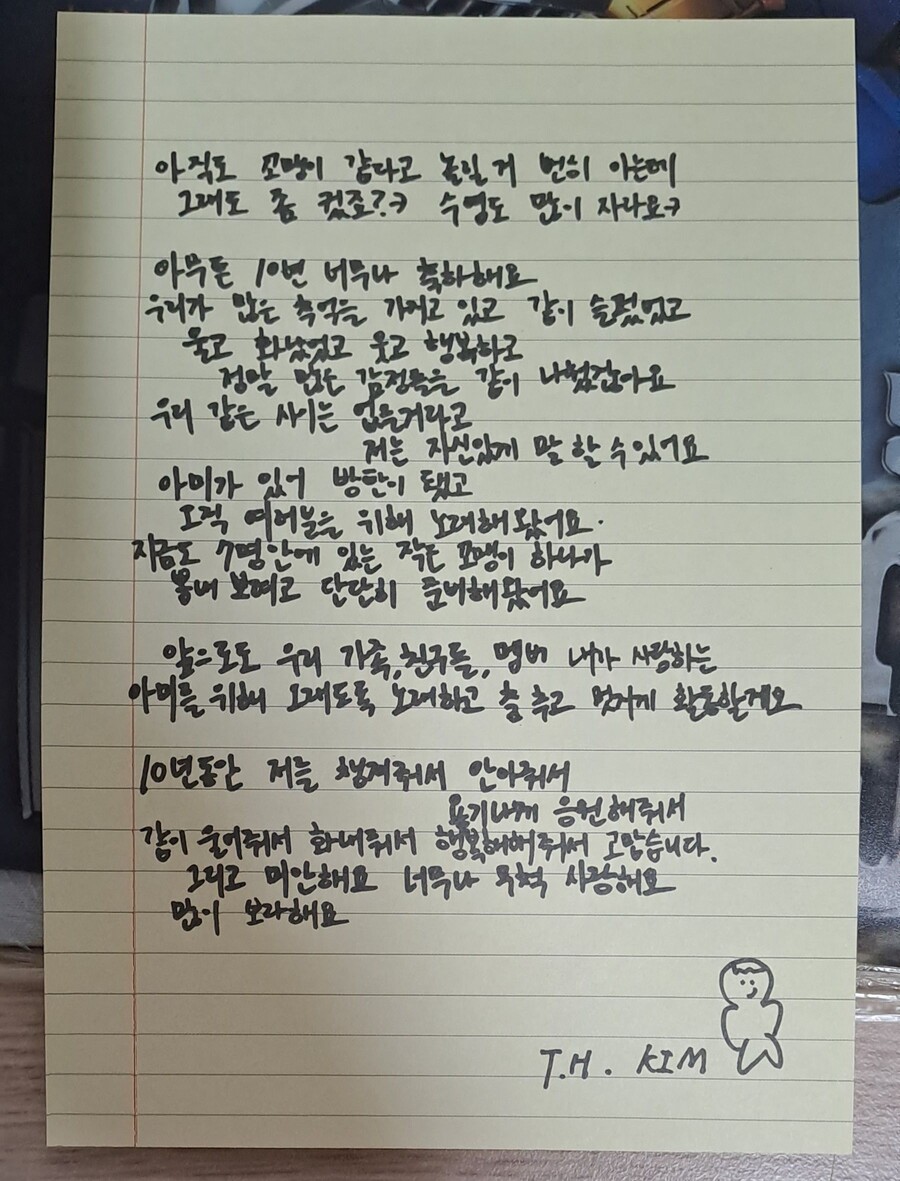 아직도 꼬맹이 같다고 놀릴게 뻔히 아는데
그래도 좀 컸죠?ㅋ 수염도 많이 자라요ㅋ
아무튼 10년 너무나 축하해요
우리가 많은 추억을 가지고 있고 같이 슬펐었고
울고 화났었고 웃고 행복하고
정말 많은 감정들을 같이 나눴잖아요
우리 같은 사이는 없을거라고
저는 자신있게 말 할 수 있어요
아미가 있어 방탄이 됐고
오직 여러분을 위해 노래해왔어요.
지금도 7명안에 있는 작은 꼬맹이 하나가
뽐내 보려고 단단히 준비해왔어요
앞으로도 우리 가족,친구들,멤버 내가 사랑하는
아미를 위해 오래도록 노래하고 춤 추고 멋지게 활동할게요
10년동안 저를 챙겨줘서 안아줘서
용기나게 응원해줘서
같이 울어줘서 화내줘서 행복해해줘서 고맙습니다.
그리고 미안해요 너무나 무척 사랑해요
많이 보라해요
T.H. KIM